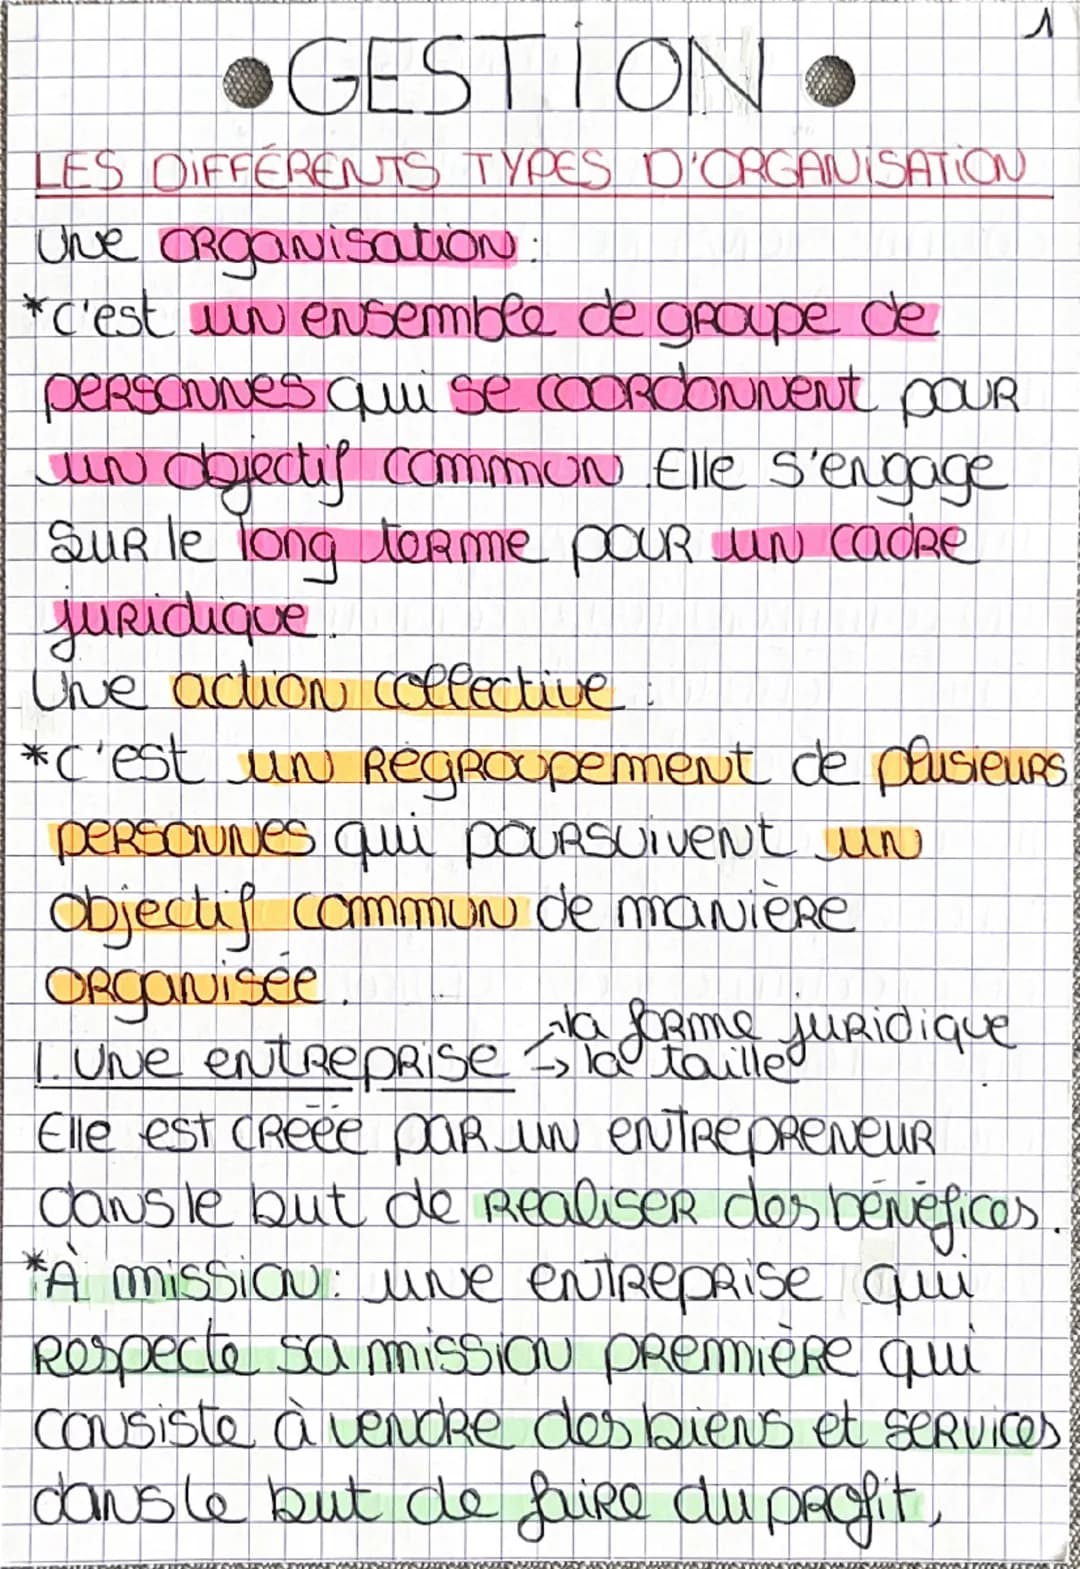 1
GESTION
LES DIFFÉRENTS TYPES D'ORGANISATION
Une organisation :
*c'est un ensemble de groupe de
personnes qui se coordonnent pour
un objectif commun. Elle s'engage
sur le long terme pour un cadre
juridique.
Une action collective :
*c'est un regroupement de plusieurs
personnes qui poursuivent un
objectif commun de manière
organisée.
→la forme juridique
1. Une entreprise → la taille
Elle est créée par un entrepreneur
dans le but de réaliser des bénéfices.
*À mission : une entreprise qui
respecte sa mission première qui
consiste à vendre des biens et services
dans le but de faire du profit,